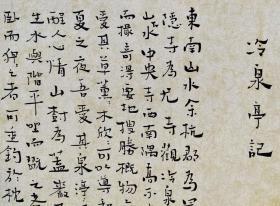 冷泉亭記
東南山水余杭郡為
隱寺為尤寺觀冷泉
山水中央寺西南隅高不
而撮奇得要地搜勝概物
愛其草薰木欣可以導
夏之夜吾愛其泉渟
醒人心情山樹為蓋巖
生水與階平坐而翫之
臥而狎之者可垂釣於枕